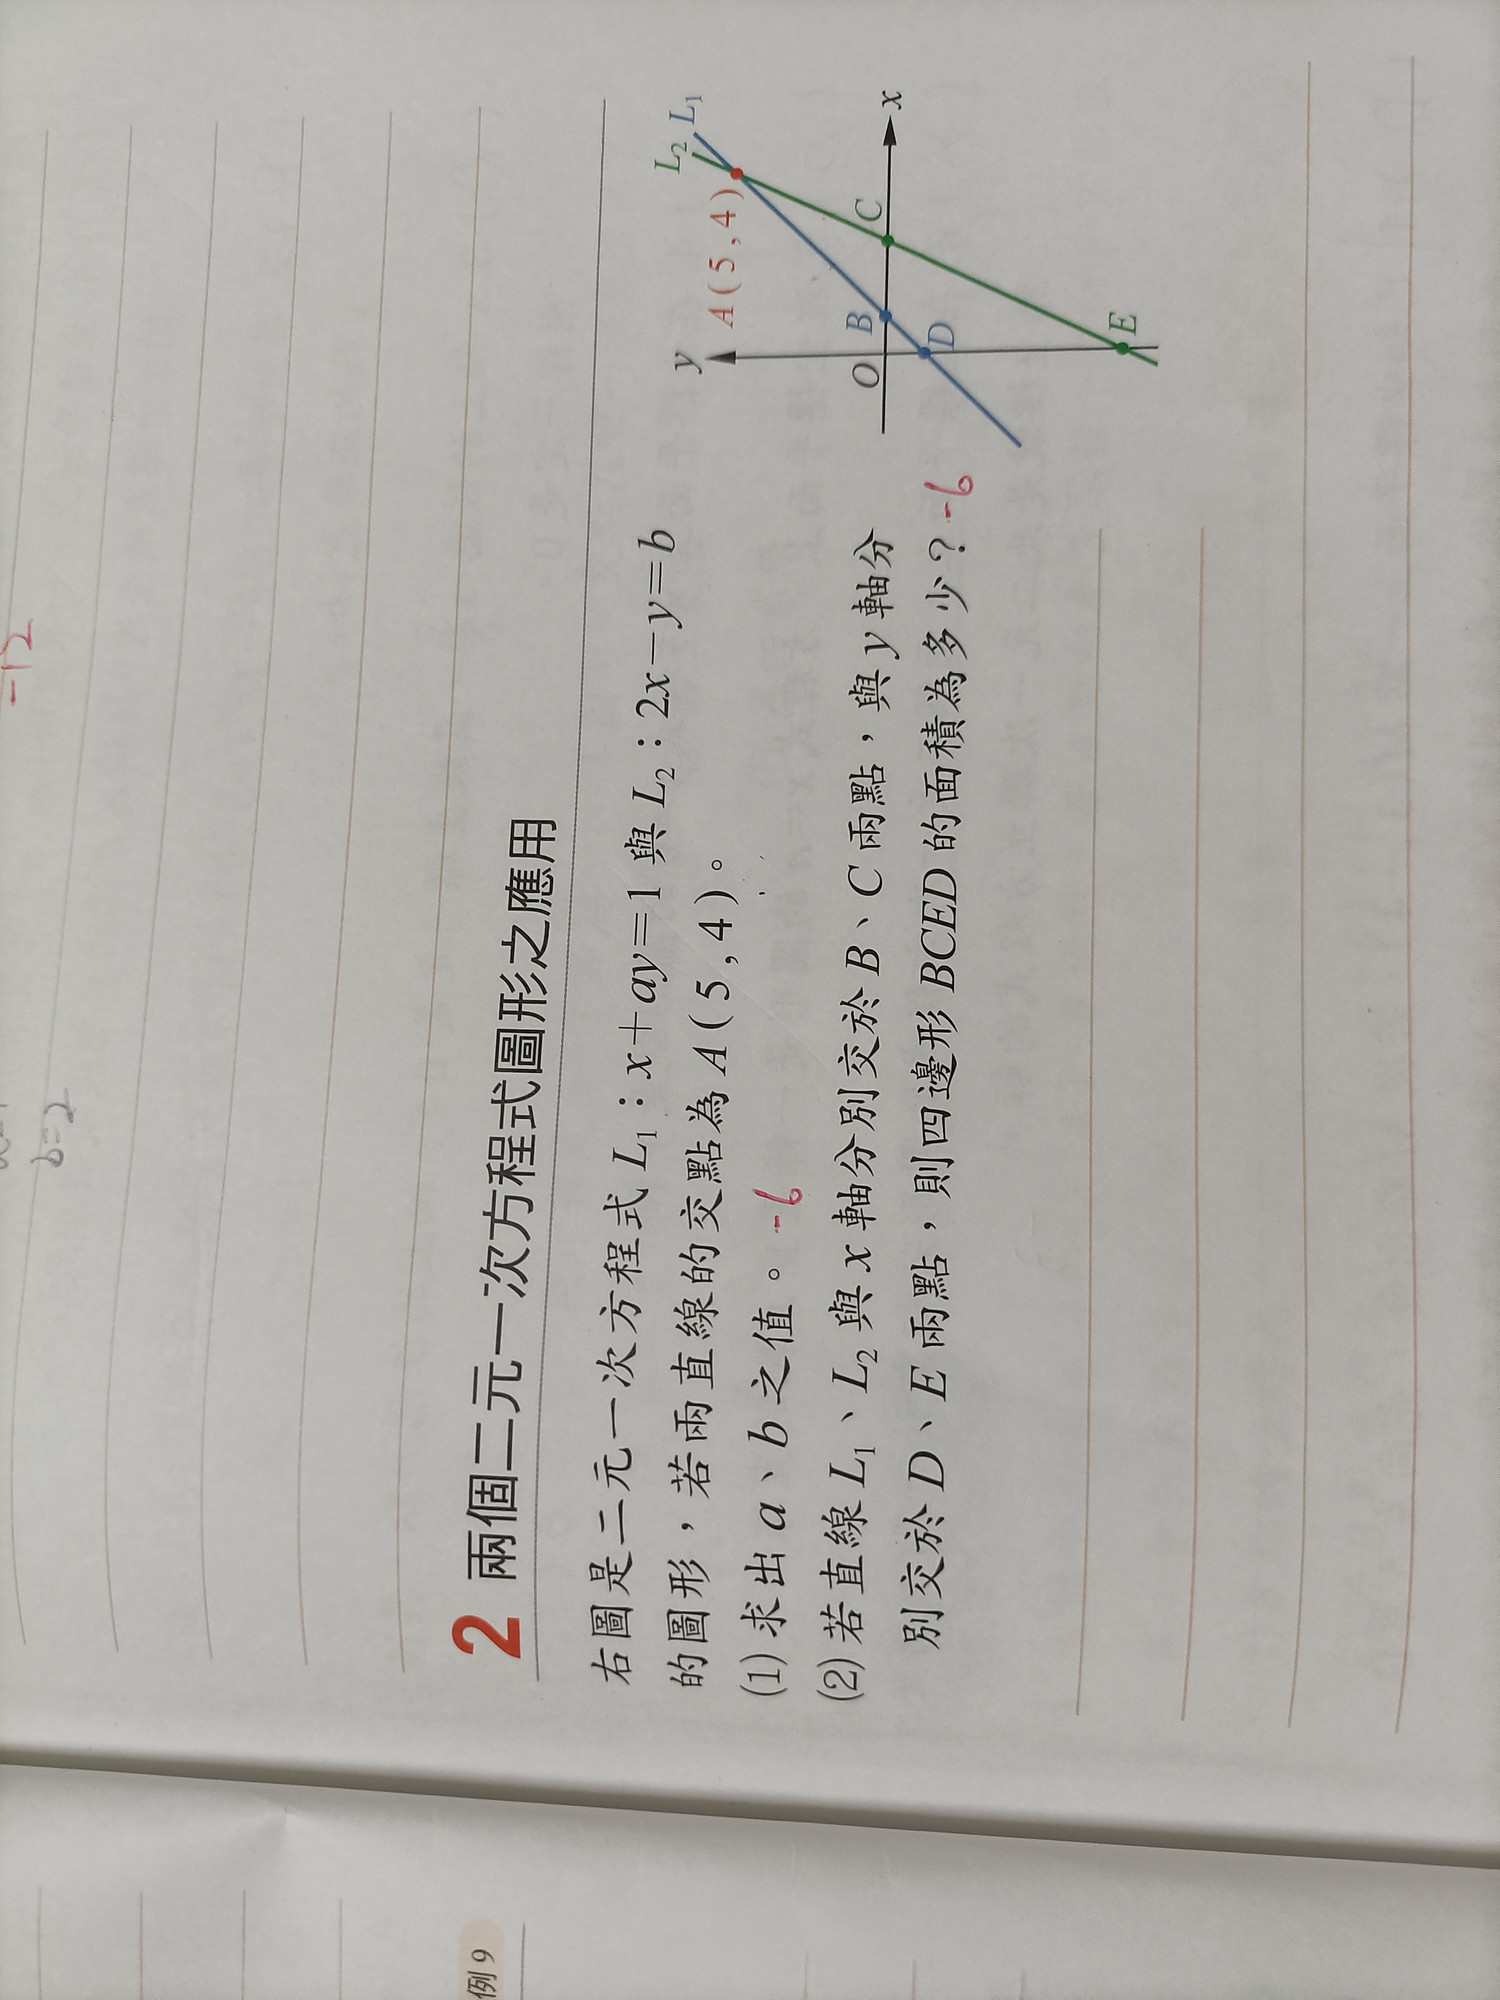 -12
b=2
2 兩個二元一次方程式圖形之應用
右圖是二元一次方程式 L₁：x＋ay＝1 與 L₂：2x－y＝b
的圖形，若兩直線的交點為 A(5,4)。
(1) 求出 a、b 之值。 -6
(2) 若直線 L₁、L₂ 與 x 軸分別交於 B、C 兩點，與 y 軸分
別交於 D、E 兩點，則四邊形 BCED 的面積為多少？ -6
y
A(5,4)
L₂
L₁
O
B
C
x
D
E
例 9